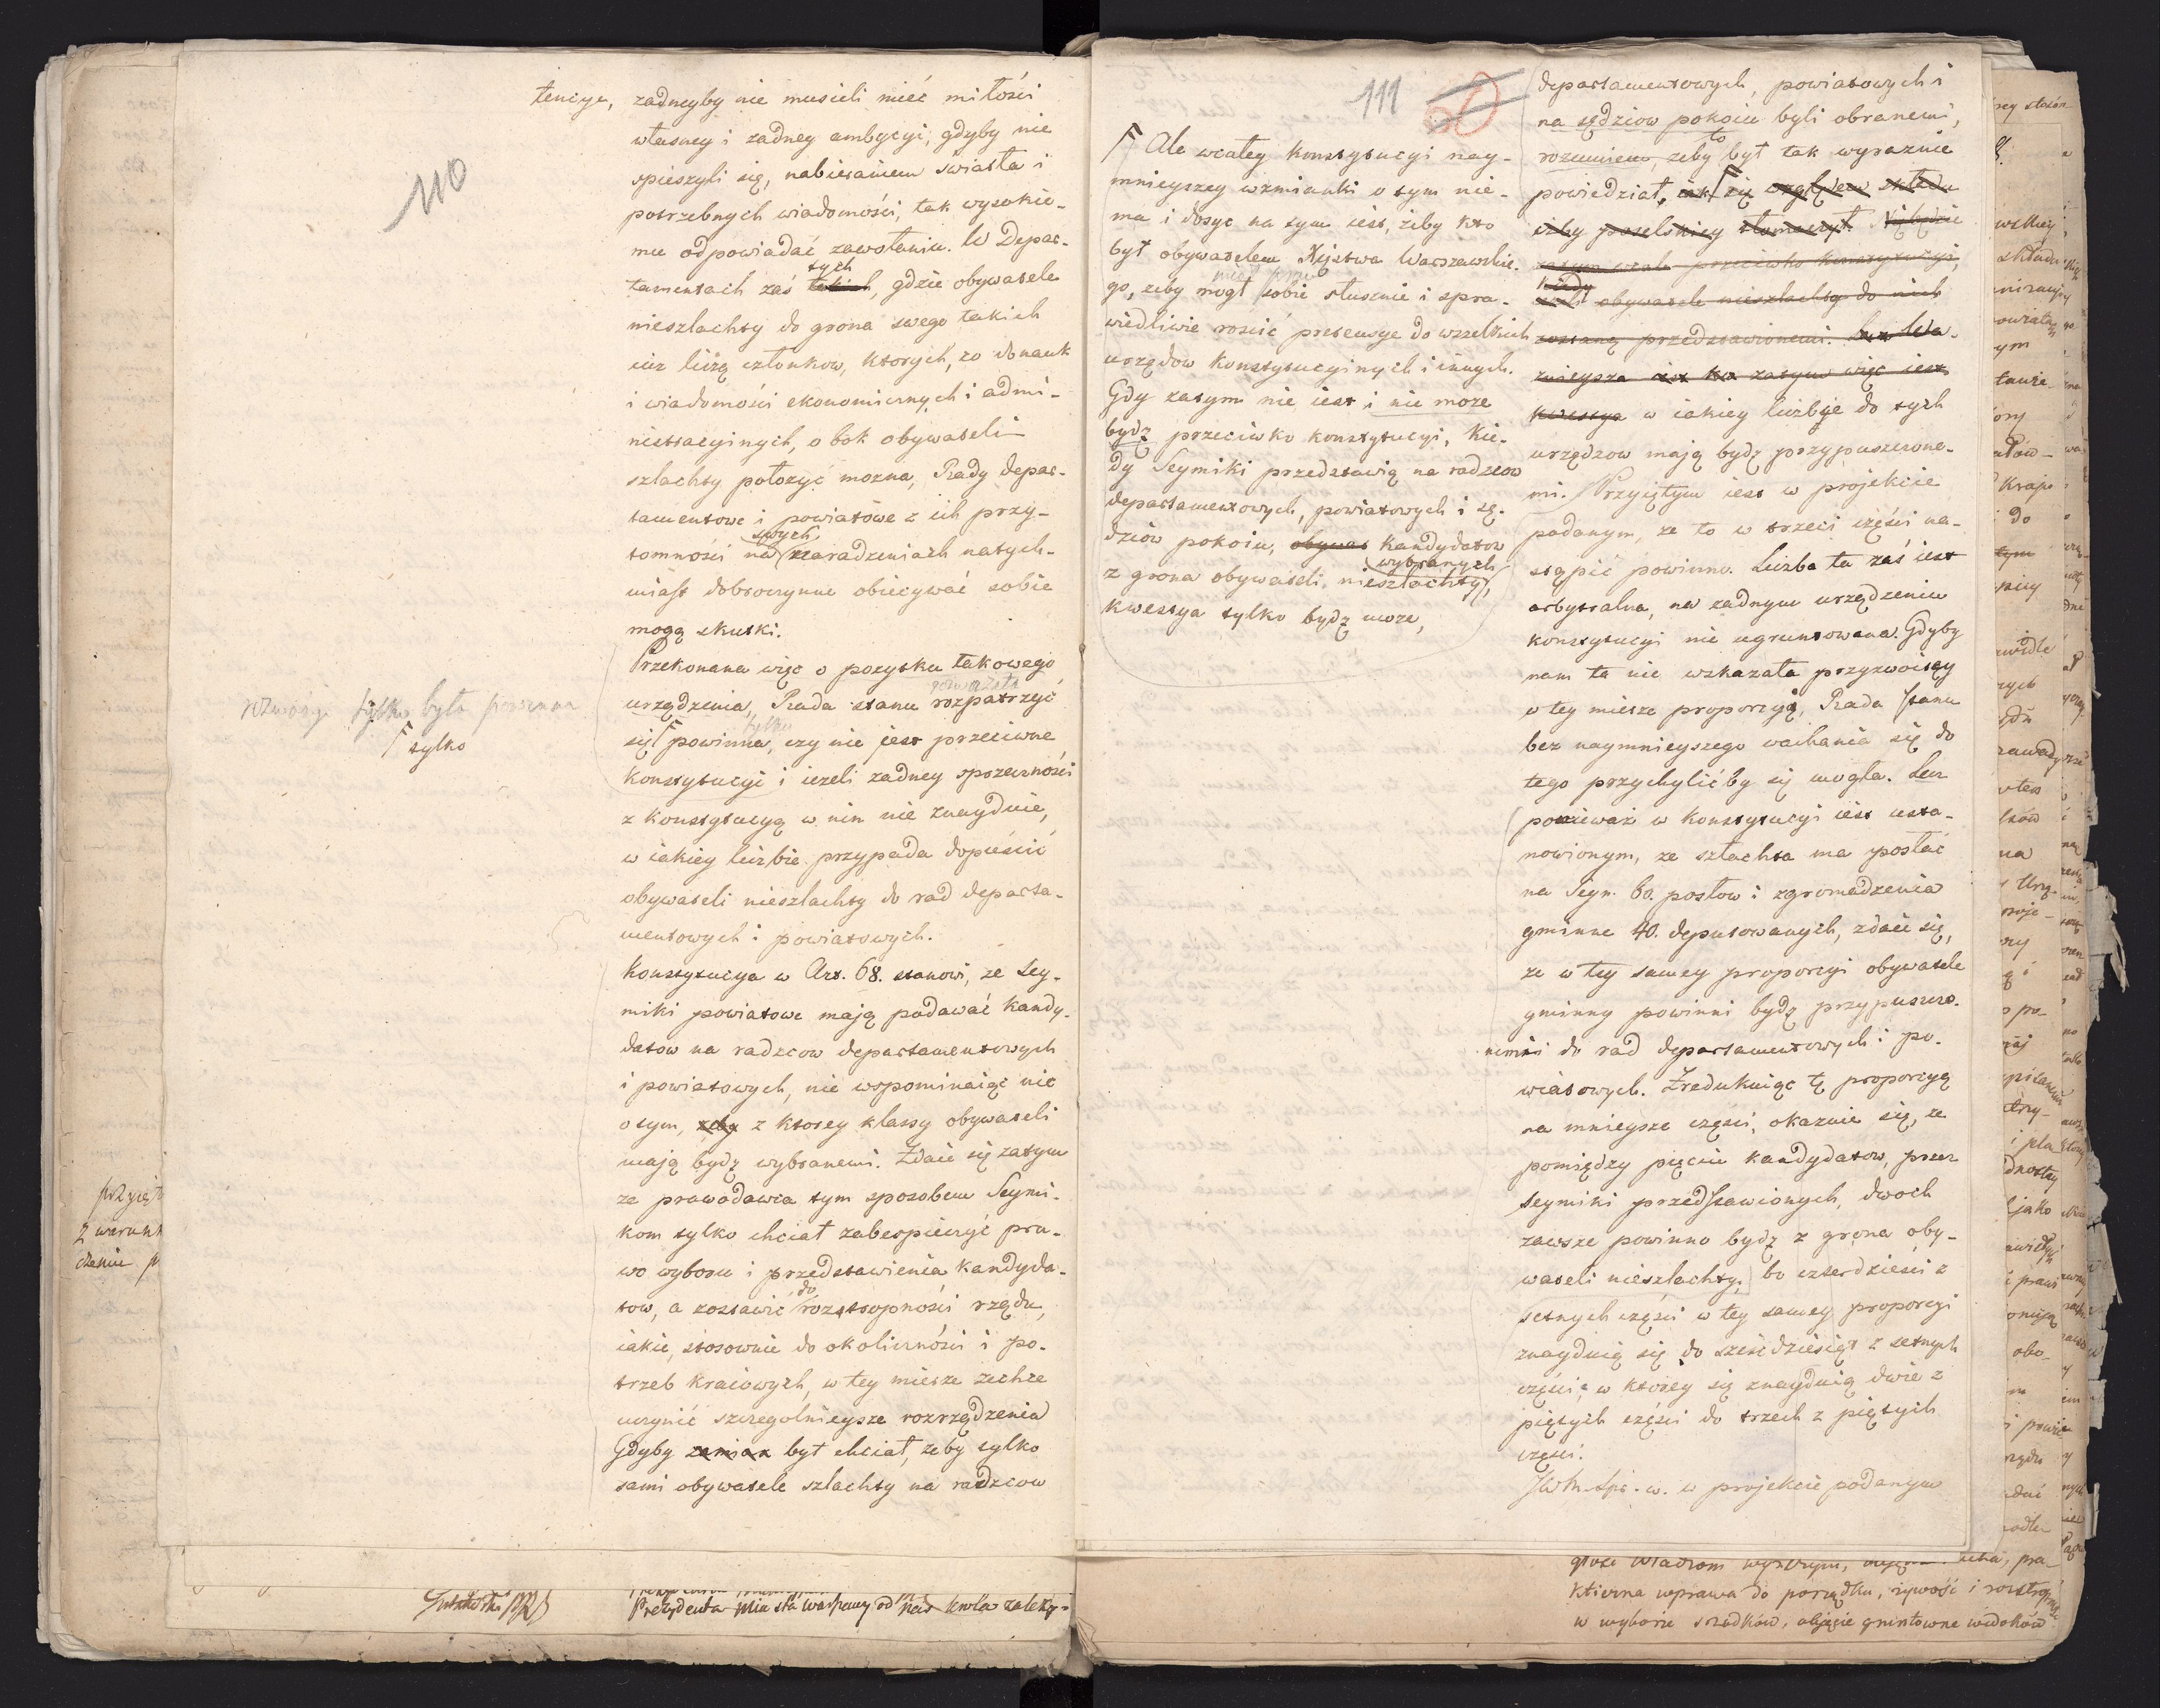 110
tencye, zadneyby nie musieli mieć miłości
własney i zadney ambycyi, gdyby nie
spieszyli się, nabieraniem światła i
potrzebnych wiadomości, tak wysokie-
mu odpowiadać zawołaniu. W Depar-
tych
tamentach zaś takich, gdzie obywatele
nieszlachty do grona swego takich
iuż liczą członkow, ktorych, co do nauk
i wiadomości ekonomicznych i admi-
nistracyinych, obok obywateli
szlachty położyć mozna, Rady depar-
tamentowe i powiatowe z ich przy-
swych
tomności na zaradzeniach natych-
miast dobroczynne obiecywać sobie
mogą skutki.
Przekonana więc o pozytku takowego
urządzenia, Rada stanu rozpatrzyć
tylko
się powinna, czy nie jest przeciwne
tylko była powinna
tylko
Konstytucyi i iezeli zadney sprzeczności
z Konstytucyą w nim nie znayduie,
w iakiey liczbie przypada dopuścić
obywateli nieszlachty do rad departa-
mentowych i powiatowych.
Konstytucya w Art. 68. stanowi, ze Sey-
miki powiatowe mają podawać kandy-
datow na radzcow departamentowych
i powiatowych, nie wspominaiąc nic
o tym, zeby z ktorey klassy obywateli
mają bydź wybranemi. Zdaie się zatym
ze prawodawca tym sposobem Seymi-
kom tylko chciał zabespieczyć pra-
wo wyboru i przedstawienia kandyda-
do
tow, a zostawić roztropności rządu,
iakie, stosownie do okoliczności i po-
trzeb kraiowych, w tey mierze zechce
uczynić szczegolnieysze rozrządzenia
Gdyby zamiar był chciał, zeby tylko
sami obywatele szlachty na radzcow
Prezydenta Miasta Warszawy od Nas Krola zależy
111
Ale wcałey konstytucyi nay-
mnieyszey wzmianki o tym nie-
ma i dosyc na tym iest, żeby kto
był obywatelem Xięstwa Warszawskie-
go, zeby mogł sobie słusznie i spra-
wiedliwie roscić pretensye do wszelkich
urzędow konstytucyinych i innych.
Gdy zatym nie iest i nie moze
bydź przeciwko konstytucyi, kie-
dy Seymiki przedstawią na radzcow
departamentowych, powiatowych i sę-
dziow pokoiu, obywat kandydatow
wybranych
z grona obywateli nieszlachty,
kwestya tylko bydź moze,
departamentowych, powiatowych i
na sędziow pokoiu byli obranemi,
to
rozumiem, zeby był tak wyraznie
powiedział, iak się względem składu
izby poselskiey tłomaczył. Nie będzie
zatym wcale przeciwko konstytucyi,
kiedy
obywatele nieszlachty do nich
zostaną przedstawionemi. Wa-
znieysza zatym więc iest
kwestya w iakiey liczbie do tych
urzędzow mają bydź przypuszczone-
mi. Przyiętym iest w projekcie
podanym, ze to w trzeci części na-
stąpić powinno. Liczba ta zaś iest
arbytralna, na zadnym urządzeniu
konstytucyi nie ugruntowana. Gdyby
nam ta nie wskazała przyzwoitey
w tey mierze proporcyi, Rada stanu
bez naymnieyszego wachania się do
tego przychylićby się mogła. Lecz
ponieważ w konstytucyi iest usta-
nowionym, ze szlachta ma posłać
na Seym 60. posłow i zgromadzenia
gminne 40. deputowanych, zdaie się,
ze w tey samey proporcyi obywatele
gminny powinni bydź przypuszczo-
nemi do rad departamentowych i po-
wiatowych. Zredukuiąc tę proporcyą
na mnieysze części, okazuie się, ze
pomiędzy pięciu kandydatow, przez
seymiki przedstawionych, dwoch
zawsze powinno bydź z grona oby-
wateli nieszlachty, bo czterdzieści z
setnych części w tey samey proporcyi
znayduią się do sześćdziesiąt z setnych
części, w ktorey się znayduią dwie z
piątych części do trzech z piątych
części.
w projekcie podanym
kticzna wprawa do porządku, żywość i roztropność
w wyborze srodków, objęcie gruntowne widoków